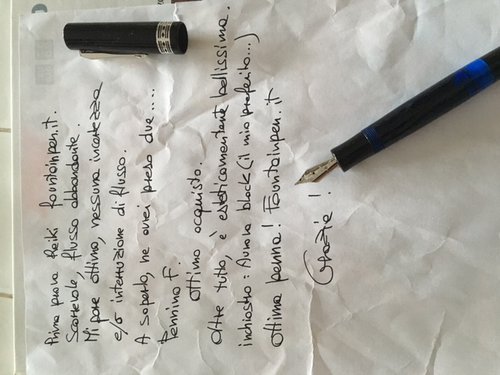 Prima prova Reiki fountainpen.it.
Scorrevole, flusso abbondante.
Mi pare ottima, nessuna incertezza
e/o interruzione di flusso.
A saperlo, ne avrei preso due....
Pennino F.
Ottimo acquisto.
Oltre tutto, è esteticamente bellissima.
inchiostro: Aurora black (il mio preferito...)
Ottima penna! Fountainpen.it
Grazie!